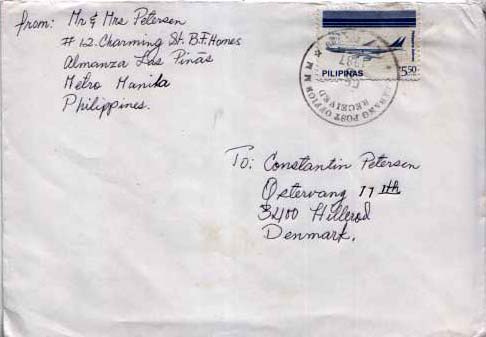 from: Mr & Mrs Petersen
# 12. Charming St. B.F. Homes
Almanza Las Piñas
Metro Manila
Philippines.
PILIPINAS
5.50
1987
POST OFFICE M M
RECEIVED
To: Constantin Petersen
Ostervang 17 th
3400 Hillerod
Denmark.